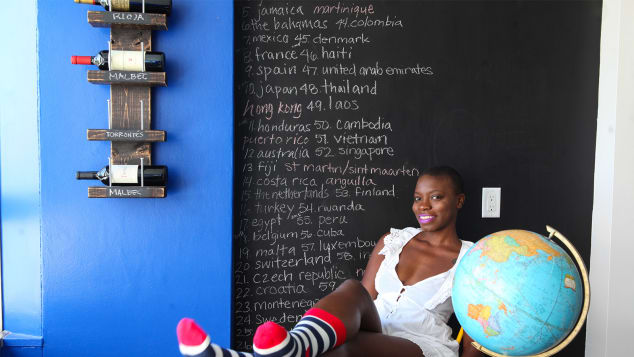 RIOJA
MALBEC
TORRONTÉS
MALBEC
5 jamaica martinique
6 the bahamas 44. colombia
7. mexico 45 denmark
8 france 46 haiti
9 spain 47 united arab emirates
japan 48. thailand
hong kong 49. laos
honduras 50. cambodia
puerto rico 51. vietnam
12 australia 52. singapore
13 fiji st martin/sint maarten
14 costa rica, anguilla
15 the netherlands 53. FINLAND
16 turkey 54. rwanda
17 egypt 55. peru
18 belgium 56 cuba
19 malta 57. luxembou
20 switzerland 58.
21. Czech republic
22 croatia 59
23. montenegr
24 Sweden